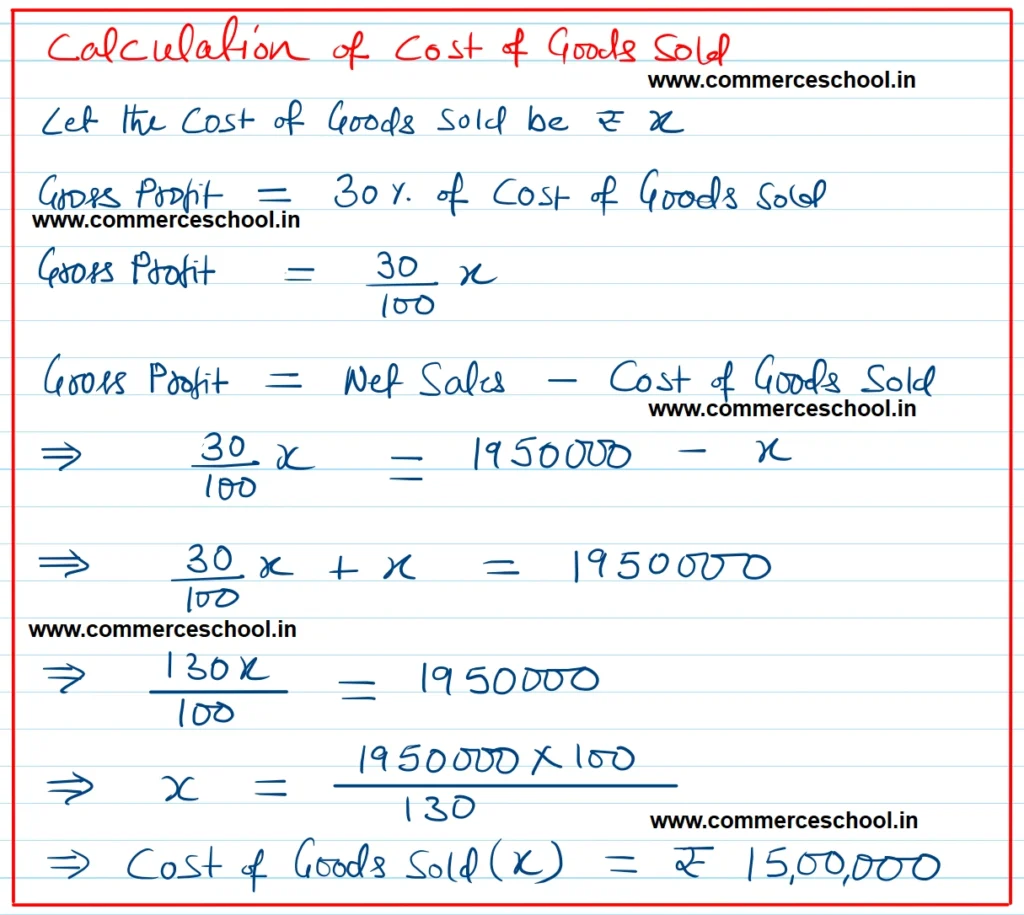 Calculation of Cost of Goods Sold
www.commerceschool.in
Let the Cost of Goods Sold be ₹ x
Gross Profit = 30% of Cost of Goods Sold
www.commerceschool.in
Gross Profit = 30/100 x
Gross Profit = Net Sales - Cost of Goods Sold
www.commerceschool.in
⇒ 30/100 x = 1950000 - x
⇒ 30/100 x + x = 1950000
www.commerceschool.in
⇒ 130x/100 = 1950000
⇒ x = 1950000 × 100/130
www.commerceschool.in
⇒ Cost of Goods Sold (x) = ₹ 15,00,000